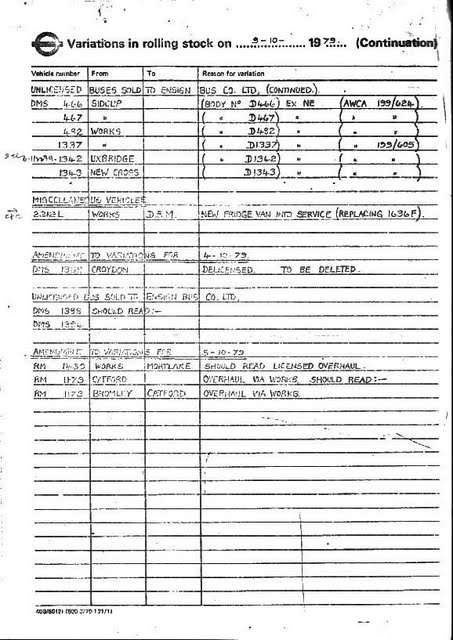 Variations in rolling stock on 9-10- 1979 (Continuation)
Vehicle number From To Reason for variation
UNLICENSED BUSES SOLD TO ENSIGN BUS CO. LTD, (CONTINUED).
DMS 466 SIDCUP (BODY Nº D466) EX NE (AWCA 199/624)
467 " ( " D467) " ( " " )
492 WORKS ( " D492) " ( " " )
1337 " ( " D1337) " ( " 199/605)
1342 UXBRIDGE ( " D1342) " ( " " )
1343 NEW CROSS ( " D1343) " ( " " )
MISCELLANEOUS VEHICLES
WORKS D.S.M. NEW FRIDGE VAN INTO SERVICE (REPLACING 1636F).
AMENDMENT TO VARIATIONS FOR 4-10-79.
DMS CROYDON DELICENSED. TO BE DELETED.
UNLICENSED BUS SOLD TO ENSIGN BUS CO. LTD.
DMS 1398 SHOULD READ:-
DMS
AMENDMENT TO VARIATIONS FOR 5-10-79
RM WORKS MORTLAKE SHOULD READ LICENSED OVERHAUL.
RM 1173 CATFORD OVERHAUL VIA WORKS. SHOULD READ:-
RM 1173 BROMLEY CATFORD OVERHAUL VIA WORKS.